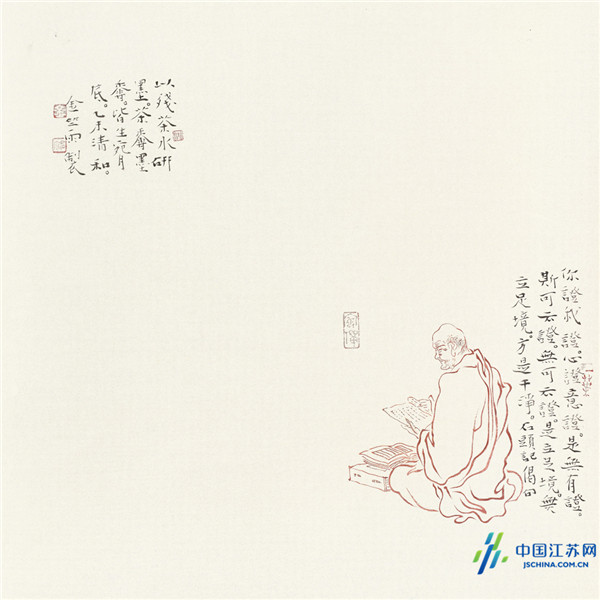 你證我證。心證意證。是無有證。
斯可云證。無可云證。是立足境。無
立足境。方是干淨。石頭記偈句
以殘茶水研
墨。茶香墨
香。皆生腕
底。乙未清和。
金竺雨製
中国江苏网
JSCHINA.COM.CN